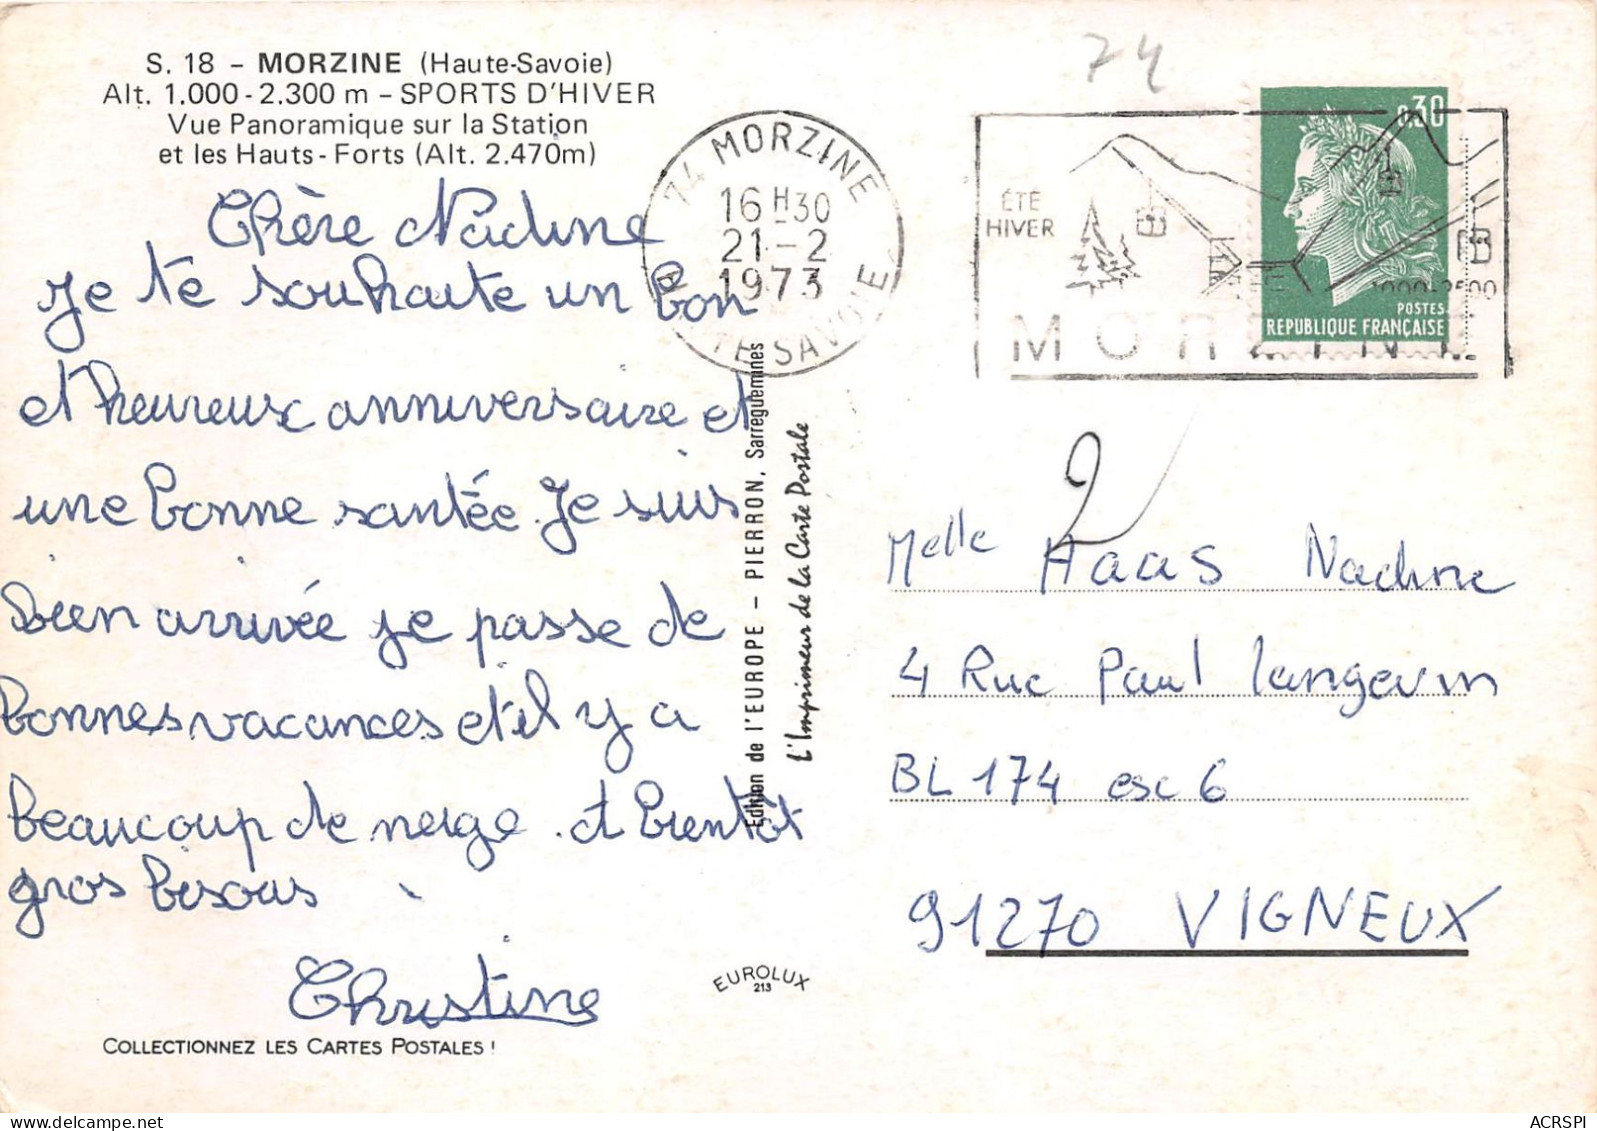 S. 18 - MORZINE (Haute-Savoie)
Alt. 1.000 - 2.300 m - SPORTS D'HIVER
Vue Panoramique sur la Station
et les Hauts - Forts (Alt. 2.470m)
Chère Nadine
je te souhaite un bon
et heureux anniversaire et
une bonne santée. Je suis
bien arrivée je passe de
bonnes vacances et il y a
beaucoup de neige. et bientôt
gros bisous
Christine
COLLECTIONNEZ LES CARTES POSTALES !
74 MORZINE
16 H 30
21 - 2
1973
HAUTE SAVOIE
Edition de l'EUROPE - PIERRON, Sarreguemines
L'Imprimeur de la Carte Postale
EUROLUX
213
74
ÉTÉ
HIVER
MORZINE
0.30
POSTES
REPUBLIQUE FRANÇAISE
2
Melle Haas Nadine
4 Rue Paul Langevin
BL 174 esc 6
91270 VIGNEUX
ACRSPI